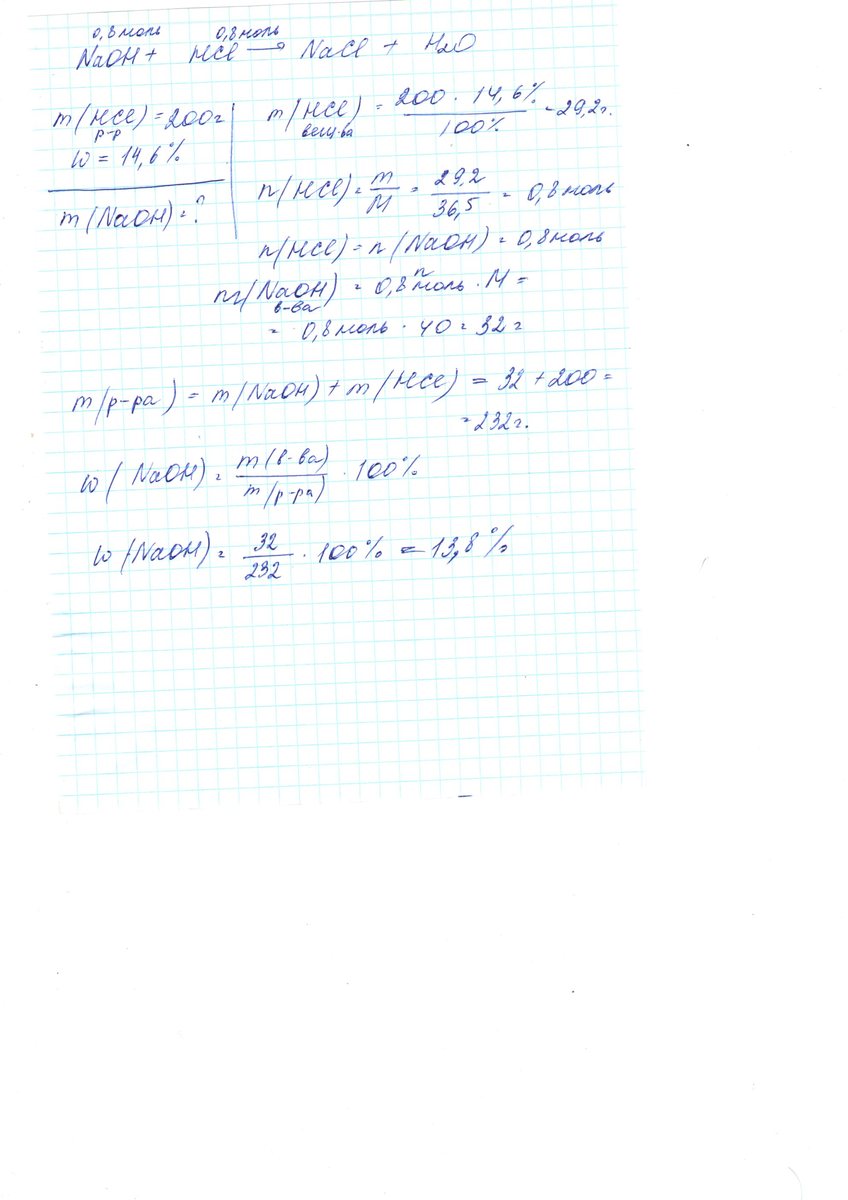 0,8 моль 0,8 моль
NaOH + HCl → NaCl + H₂O
m(HCl) = 200г
р-р
w = 14,6%
m(NaOH) = ?
m(HCl) = 200 · 14,6% / 100% = 29,2г.
вещ-ва
n(HCl) = m/M = 29,2/36,5 = 0,8 моль
n(HCl) = n(NaOH) = 0,8 моль
n
m(NaOH) = 0,8 моль · M =
в-ва
= 0,8 моль · 40 = 32 г
m(р-ра) = m(NaOH) + m(HCl) = 32 + 200 =
= 232г.
w(NaOH) = m(в-ва) / m(р-ра) · 100%
w(NaOH) = 32/232 · 100% = 13,8%